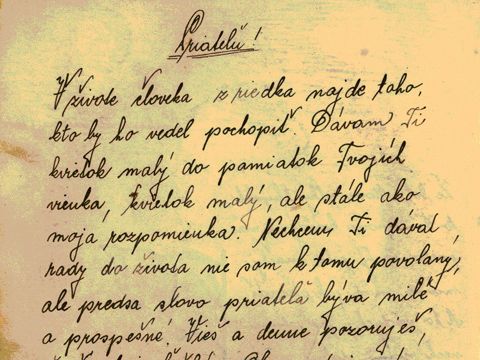 Priateľu!
V živote človeka zriedka najde toho,
kto by ho vedel pochopiť. Dávam Ti
kvietok malý do pamiatok Tvojích
vienka, kvietok malý, ale stále ako
moja rozpomienka. Nechcem Ti dávať
rady do života nie som k tomu povolaný,
ale predsa slovo priateľa býva milé
a prospešné. Vieš a denne pozoruješ,